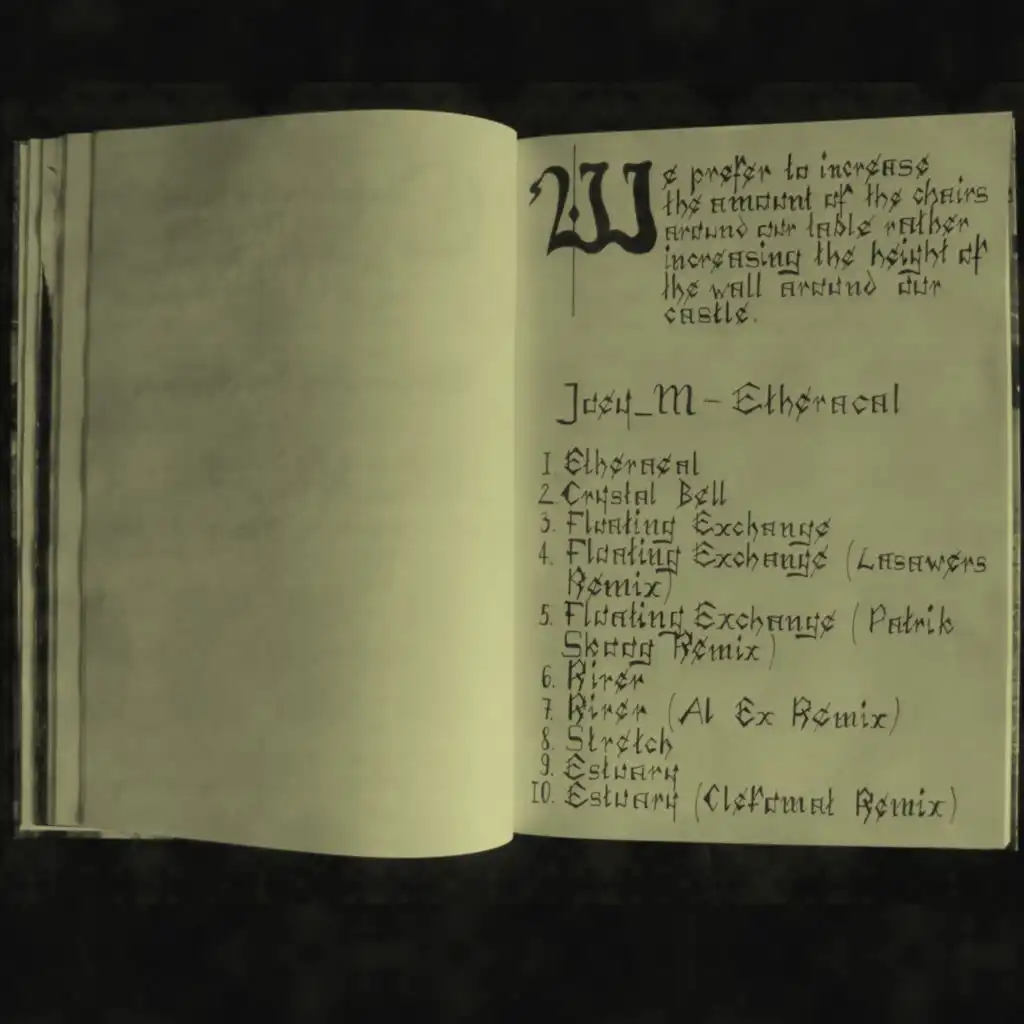 We prefer to increase
the amount of the chairs
around our table rather
increasing the height of
the wall around our
castle.
Joey_M - Etheracal
1 Etheracal
2. Crystal Bell
3. Floating Exchange
4. Floating Exchange (Lasawers
Remix)
5. Floating Exchange (Patrik
Skoog Remix)
6. Rirer
7. Rirer (Al Ex Remix)
8. Stretch
9. Estuary
10. Estuary (Clefomat Remix)